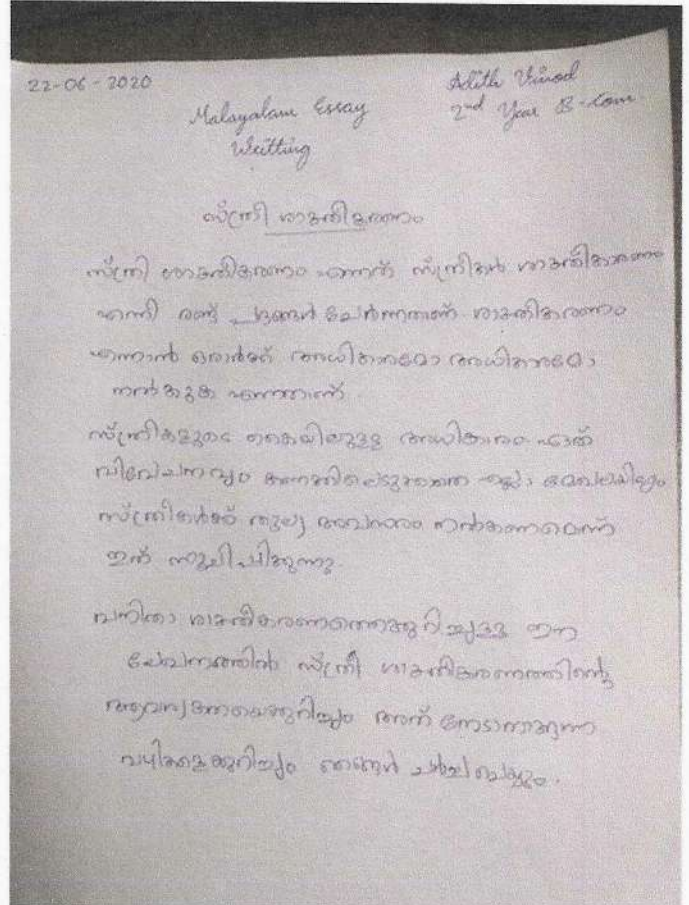 22-06-2020
Adith Vinod
2nd Year B-Com
Malayalam Essay
Writting
സ്ത്രീ ശാക്തീകരണം
സ്ത്രീ ശാക്തീകരണം എന്നത് സ്ത്രീകൾ ശാക്തീകരണം
എന്നീ രണ്ട് പദങ്ങൾ ചേർന്നതാണ് ശാക്തീകരണം
എന്നാൽ ഒരാൾക്ക് അധികാരമോ അധികാരമോ
നൽകുക എന്നാണ്
സ്ത്രീകളുടെ കൈയിലുള്ള അധികാരം ഏത്
വിവേചനവും കണക്കിലെടുക്കാതെ എല്ലാ മേഖലയിലും
സ്ത്രീകൾക്ക് തുല്യ അവസരം നൽകണമെന്ന്
ഇത് സൂചിപ്പിക്കുന്നു.
വനിതാ ശാക്തീകരണത്തെക്കുറിച്ചുള്ള ഈ
ലേഖനത്തിൽ സ്ത്രീ ശാക്തീകരണത്തിന്റെ
ആവശ്യകതയെക്കുറിച്ചും അത് നേടാനാകുന്ന
വഴികളെക്കുറിച്ചും ഞങ്ങൾ ചർച്ച ചെയ്യും.